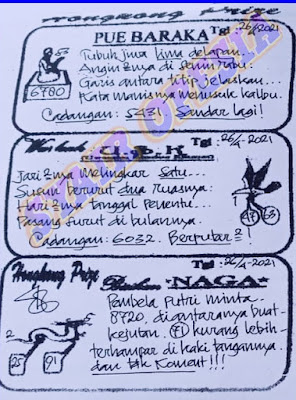 Hongkong Prize
PUE BARAKA
Tgl : 26/4-2021
Tubuh jiwa lima delapan
Angin2nya di Senin Rabu
Garis antara titip jelaskan...
Kata manisnya menusuk kalbu.
Cadangan: 5431. Sandar lagi!
6780
Tgl : 26/4-2021
Jari2nya Melingkar Satu...
Susun berurut dua Ruasnya:
Hari2nya tanggal Penentu...
Pasang surut di bulannya.
Cadangan: 6032. Berputar2!
47
63
Hongkong Prize
Tgl : 26/4-2021
NAGA
Pembela Putri minta.
8720, diantaranya buat-
kejutan. 71 kurang lebih-
terhampar di kaki tangannya.
dan tak Koment!!!
2
25
91